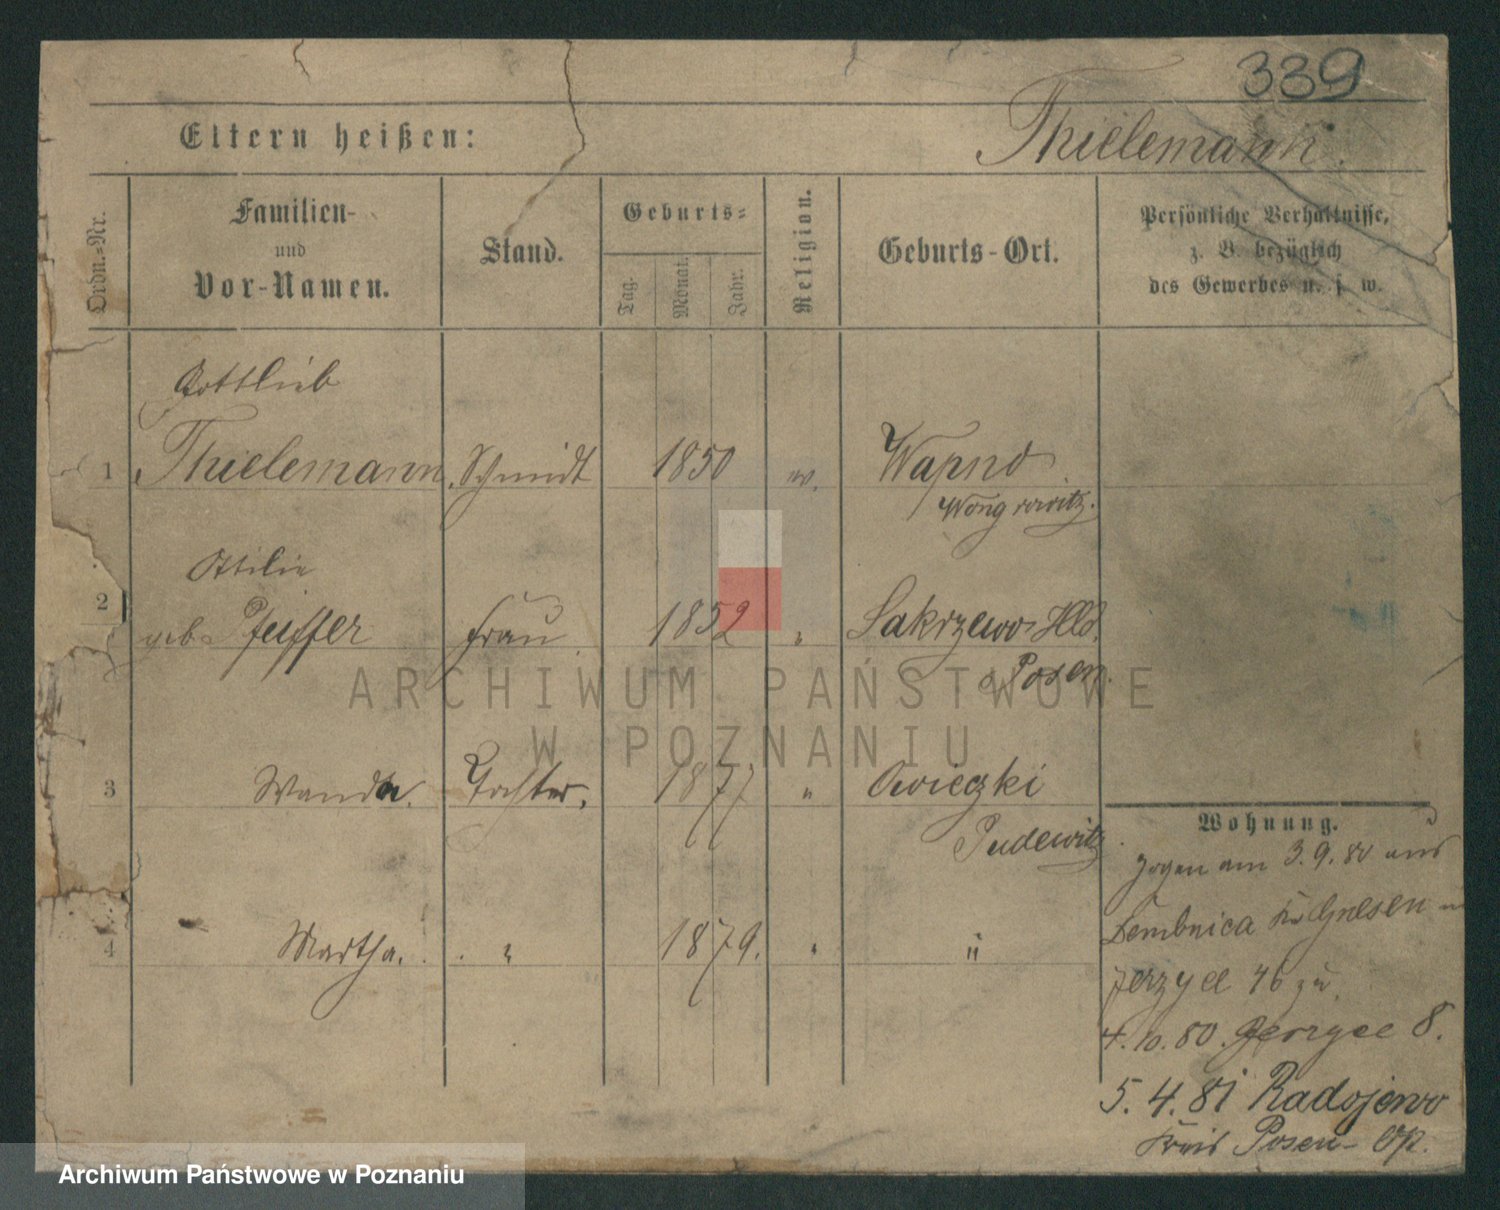 339
Eltern heißen:
Thielemann.
Ordn.-Nr.
Familien-
und
Vor-Namen.
Stand.
Geburts-
Tag.
Monat.
Jahr.
Religion.
Geburts-Ort.
Persönliche Verhältnisse,
z. B. bezüglich
des Gewerbes u. s. w.
Gottlieb
1 Thielemann Schmidt 1850 Wapno
Wongrowitz.
Ottilie
2 geb. Pfeiffer Frau 1852 " Sakrzewo Hld.
Posen.
3 Wanda. Tochter. 1877 " Owieczki
Pudewitz
4 Martha. " 1879. " "
Wohnung.
zogen am 3.9.80 aus
Dembnica Kr Gnesen
Jerzyce 46 zu
4.10.80. Jerzyce 8.
5.4.81 Radojewo
Kreis Posen
ARCHIWUM PAŃSTWOWE
W POZNANIU
Archiwum Państwowe w Poznaniu